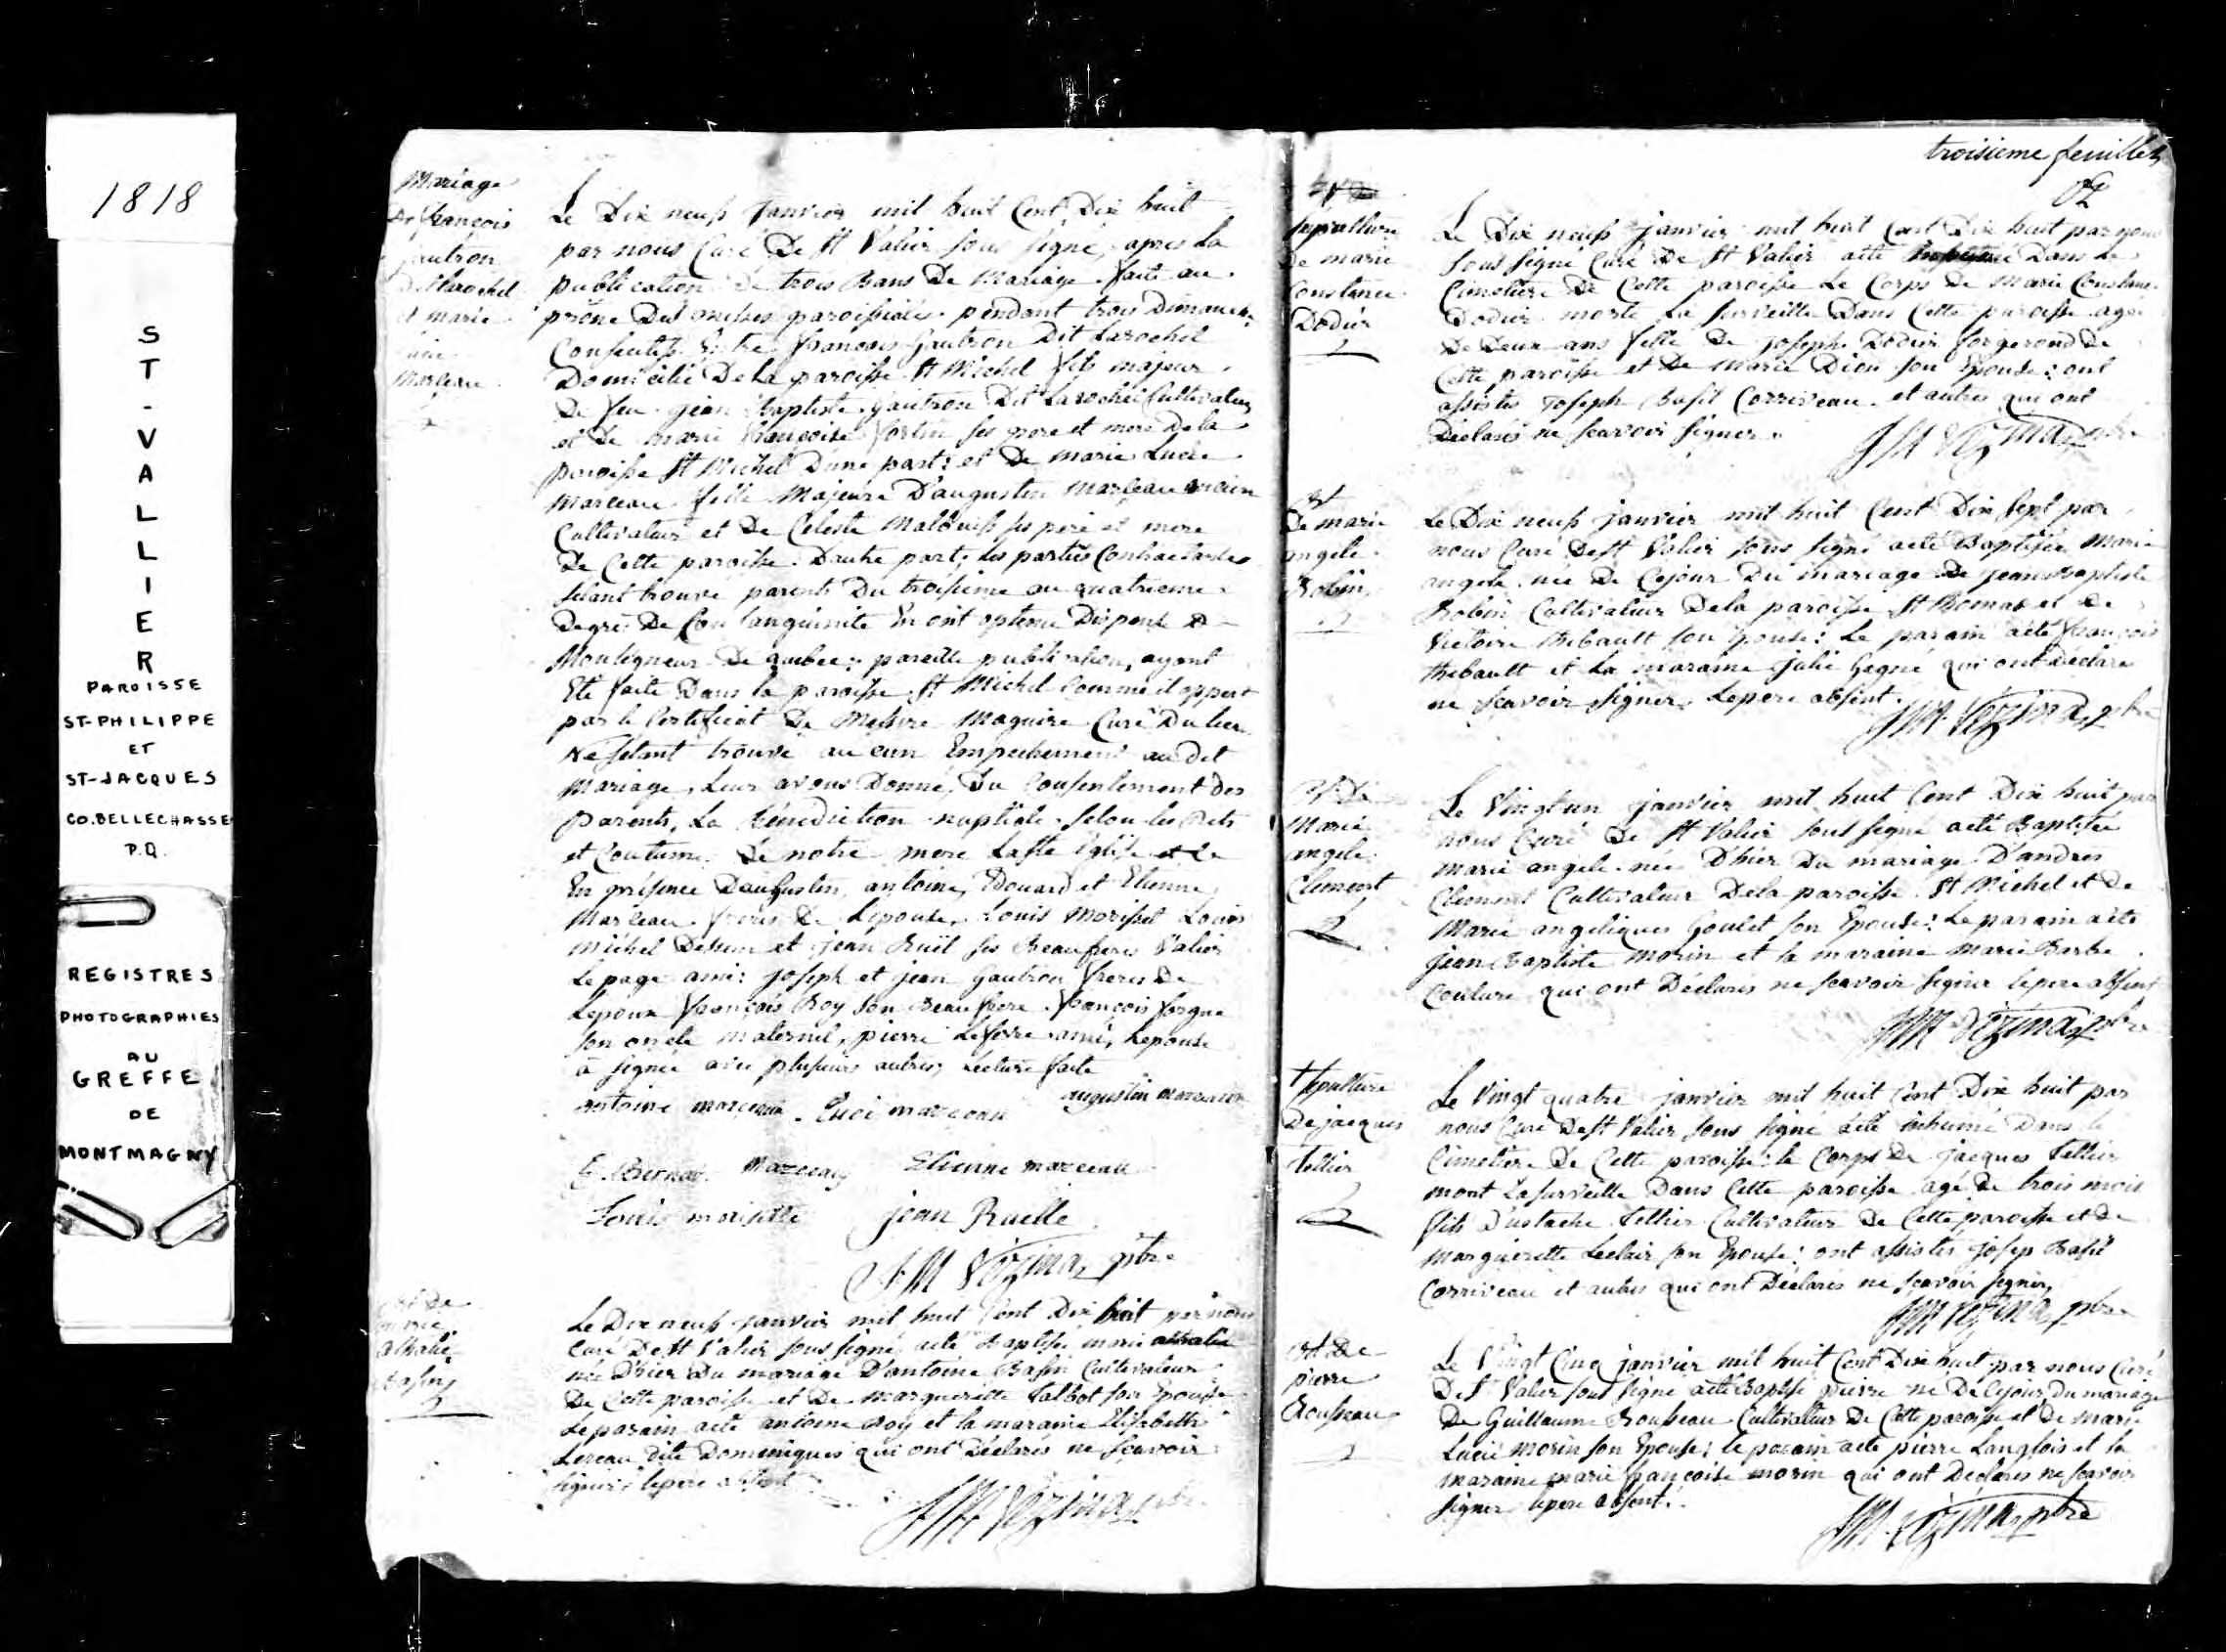 1818
ST-VALLIER
PAROISSE
ST-PHILIPPE
ET
ST-JACQUES
CO. BELLECHASSE
P.Q.
REGISTRES
PHOTOGRAPHIES
AU
GREFFE
DE
MONTMAGNY
Mariage
De françois
gautron
Dit Larochel
et marie
Lucie
Marceau
Le Dix neuf Janvier mil huit Cent Dix huit
par nous Curé De St Valier sous signé, apres la
publication De trois Bans De Mariage faite au
prône Des messes paroissiales pendant trois Dimanches
Consecutifs Entre françois Gautron Dit Larochel
Domicilié De La paroisse St Michel fils majeur
De feu jean Baptiste gautron Dit Larochel Cultivateur
et De marie françoise fortin ses pere et mere De la
paroisse St Michel D'une part; et De marie Lucie
Marceau fille Majeure D'augustin Marceau ancien
Cultivateur et De Celeste Malouiss ses pere et mere
De Cette paroisse D'autre part; Les parties Contractantes
s'étant trouvé parents Du troisieme au quatrieme
Degré De Consanguinité En ont optenu Dispense De
Monseigneur De quebec; pareille publication, ayant
Eté faite Dans la paroisse St Michel Comme il appert
par le Certificat De Messire Maguire Curé Du lieu
Ne s'etant trouvé aucun Empechement au dit
Mariage, Leur avons Donné, Du Consentement Des
Parents, La Bénédiction nuptiale selon les Rits
et Coutume De notre mere La Ste église et Ce
En présence D'augustin, antoine, Edouard et Etienne
Marceau freres De L'epouse, Louis Morisset Louis
Michel et jean Ruël ses Beaufreres Valier
Lepage ami: joseph et jean Gautron freres De
L'epoux françois Roy son Beau frere françois forgue
son oncle maternel, pierre Lefevre ami, Lepouse
à signée avec plusieurs autres; Lecture faite
antoine marceau Luci marceau augustin marceau
E. Bernar Marceau Etienne marceau
Louis morisette jean Ruelle
J M Vézina ptre
Bt De
marie
athalie
Basin
Le Dix neuf janvier mil huit Cent Dix huit par nous
Curé De St Valier sous signé a été Baptisée marie athalie
née D'hier Du mariage D'antoine Basin Cultivateur
De Cette paroisse et De marguerite Talbot son Epouse
Le parain a été antoine Roy et la maraine Elisabeth
Lereau dite Domeniques qui ont Déclarés ne scavoir
signer; le pere absent
J M Vézina ptre
troisieme feuillet
sepulture
De marie
Constance
Dodier
Le Dix neuf janvier mil huit Cent Dix huit par nous
sous signé Curé De St Valier a été Dans Le
Cimetiere De Cette paroisse Le Corps De Marie Constance
Dodier morte La surveille Dans Cette paroisse agée
De Deux ans fille De josephe Dodier forgerond De
Cette paroisse et De Marie Dion son Epouse; ont
assistés Joseph Basil Corriveau et autres qui ont
Declarés ne scavoir signer.
J M Vézina ptre
Bt
De marie
angele
Robin
Le Dix neuf janvier mil huit Cent Dix Sept par
nous Curé De St Valier sous signé a été Baptisée Marie
angele née De Cejour Du mariage De jean Baptiste
Robin Cultivateur De la paroisse St Thomas et De
Victoire Thibault son Epouse: Le parain a été françois
thebault et La maraine julie Gagné qui ont Déclaré
ne scavoir signer. Le pere absent.
J M Vézina ptre
Bt De
Marie
angele
Clement
Le Vingt un janvier mil huit Cent Dix huit par
nous Curé De St Valier sous signé a été Baptisée
marie angele née D'hier Du mariage D'andres
Clement Cultivateur De la paroisse St Michel et De
Marie angeliques Goulet son Epouse: Le parain a été
jean Baptiste morin et la maraine Marie Barbe
Couture qui ont Déclarés ne scavoir signer le pere absent
J M Vézina ptre
+ sepulture
De jacques
tellier
Le Vingt quatre janvier mil huit Cent Dix huit par
nous Curé De St Valier sous signé a été inhumé Dans le
Cimetiere De Cette paroisse le Corps De jacques tellier
mort La surveille Dans Cette paroisse agé De trois mois
fils D'ustache tellier Cultivateur De Cette paroisse et De
Marguerette Leclair son Epouse: ont assistés josep Basil
Corriveau et autres qui ont Déclarés ne scavoir signer,
J M Vézina ptre
Bt De
pierre
Rousseau
Le Vingt Cinq janvier mil huit Cent Dix huit par nous Curé
De St Valier sous signé a été Baptisé pierre né De Cejour Du mariage
De Guillaume Rousseau Cultivateur De Cette paroisse et De marie
Lucie Morin son Epouse; le parain a été pierre Langlois et la
maraine marie françoise morin qui ont Déclarés ne scavoir
signer le pere absent.
J M Vézina ptre